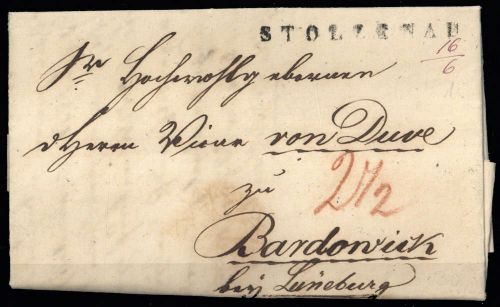 STOLZENAU
16/6
Sr Hochwohlgebornen
dHerrn Vicar von Duve
2 1/2
zu
Bardowick
bey Lüneburg